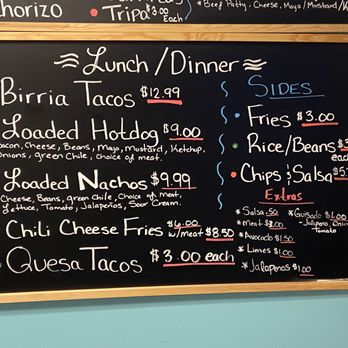 horizo
Tripa $3.00
Each
*Beef Patty, Cheese, Mayo/Mustard/K
Lunch/Dinner
Birria Tacos $12.99
Loaded Hotdog $9.00
acon, Cheese, Beans, Mayo, mustard, Ketchup,
Onions, green Chile, choice of meat.
Loaded Nachos $9.99
Cheese, Beans, green Chile, Choice of meat,
Lettuce, Tomato, Jalapeños, Sour Cream.
Chili Cheese Fries $6.00
w/meat $8.50
Quesa Tacos $3.00 each
SIDES
Fries $3.00
Rice/Beans $3
each
Chips & Salsa $5
Extras
*Salsa .50
*Meat $3.00
*Avocado $1.50
*Limes $1.00
*Jalapenos $1.00
*Guisado $1.00
Tomato